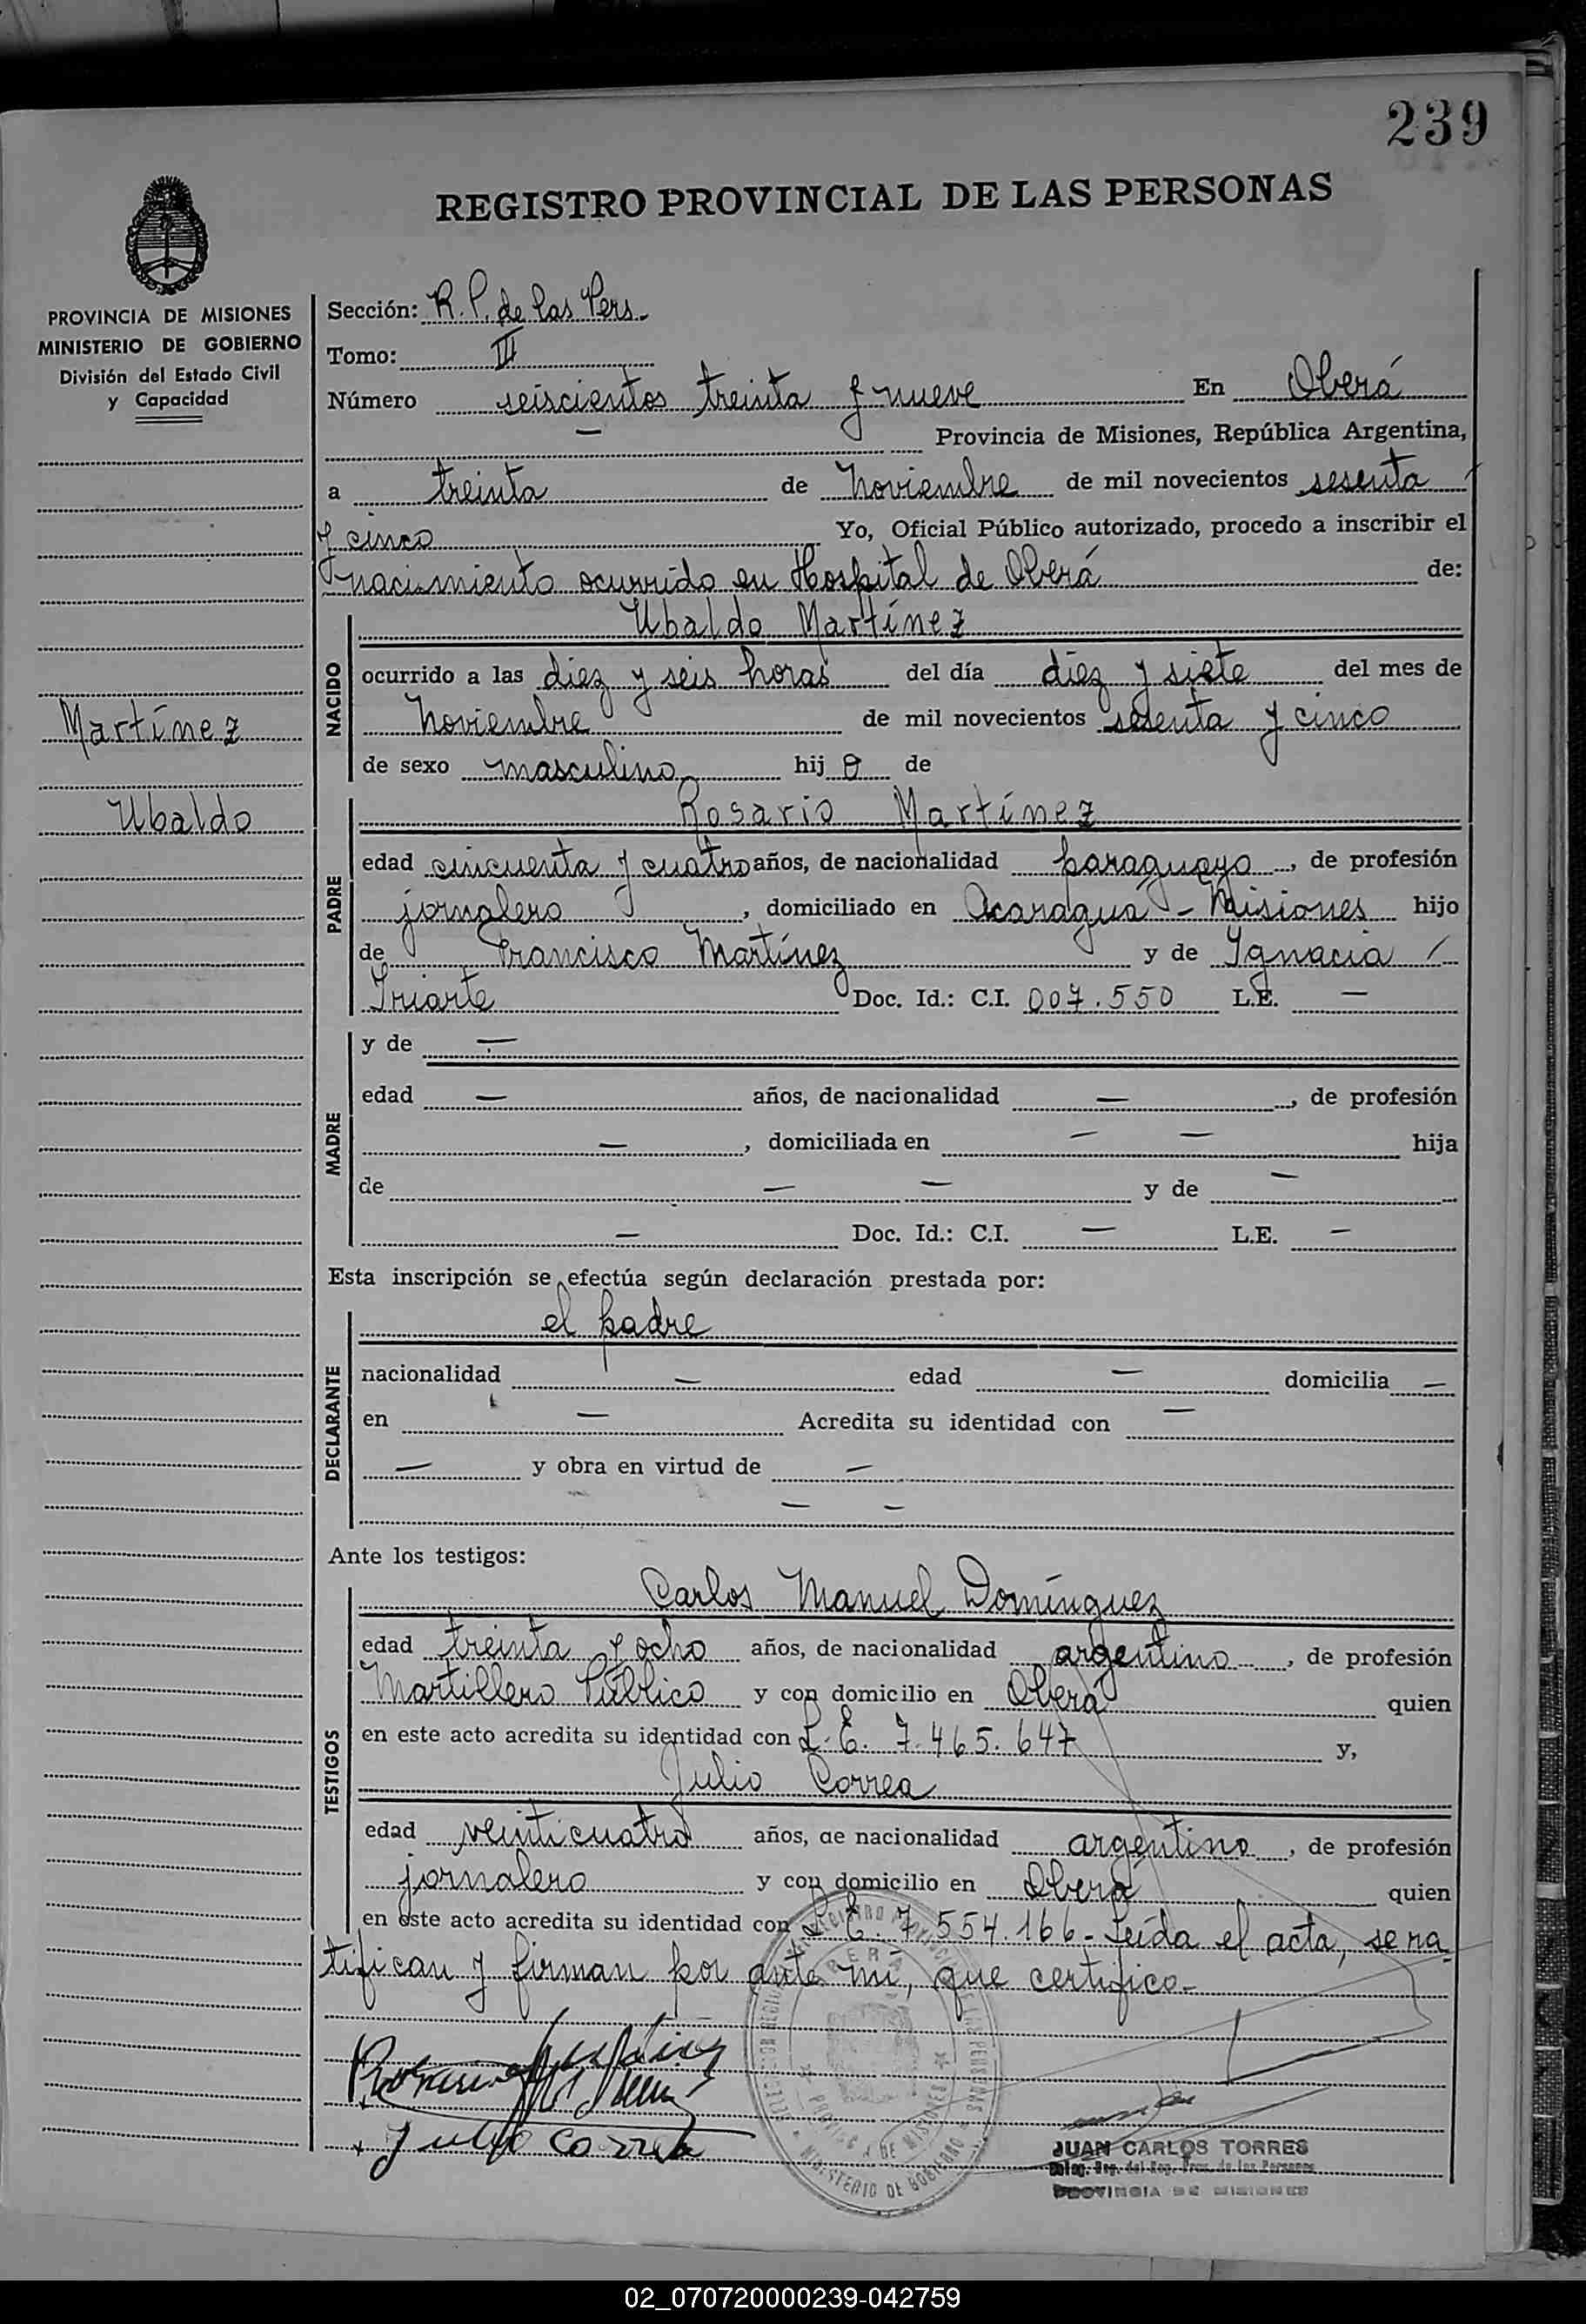 239
REGISTRO PROVINCIAL DE LAS PERSONAS
PROVINCIA DE MISIONES
MINISTERIO DE GOBIERNO
División del Estado Civil
y Capacidad
Martínez
Ubaldo
Sección: R. P. de las Pers.-
Tomo: III
Número seiscientos treinta y nueve En Oberá
— Provincia de Misiones, República Argentina,
a treinta de Noviembre de mil novecientos sesenta
y cinco Yo, Oficial Público autorizado, procedo a inscribir el
nacimiento ocurrido en Hospital de Oberá de:
NACIDO
Ubaldo Martínez
ocurrido a las diez y seis horas del día diez y siete del mes de
Noviembre de mil novecientos sesenta y cinco
de sexo masculino hij o de
PADRE
Rosario Martínez
edad cincuenta y cuatro años, de nacionalidad paraguayo, de profesión
jornalero, domiciliado en Acaragua - Misiones hijo
de Francisco Martínez y de Ignacia /
Iriarte Doc. Id.: C.I. 007.550 L.E. —
MADRE
y de —
edad — años, de nacionalidad —, de profesión
—, domiciliada en — — hija
de — — y de —
— Doc. Id.: C.I. — L.E. —
Esta inscripción se efectúa según declaración prestada por:
DECLARANTE
el padre
nacionalidad — edad — domicilia —
en — Acredita su identidad con —
— y obra en virtud de —
— —
Ante los testigos:
TESTIGOS
Carlos Manuel Domínguez
edad treinta y ocho años, de nacionalidad argentino, de profesión
Martillero Público y con domicilio en Oberá quien
en este acto acredita su identidad con L. E. 7.465.647 y,
Julio Correa
edad veinticuatro años, de nacionalidad argentino, de profesión
jornalero y con domicilio en Oberá quien
en este acto acredita su identidad con L. E. 7.554.166- Leída el acta, se ra
tifican y firman por ante mí, que certifico.-
Julio Correa
JUAN CARLOS TORRES
PROVINCIA DE MISIONES
02_070720000239-042759